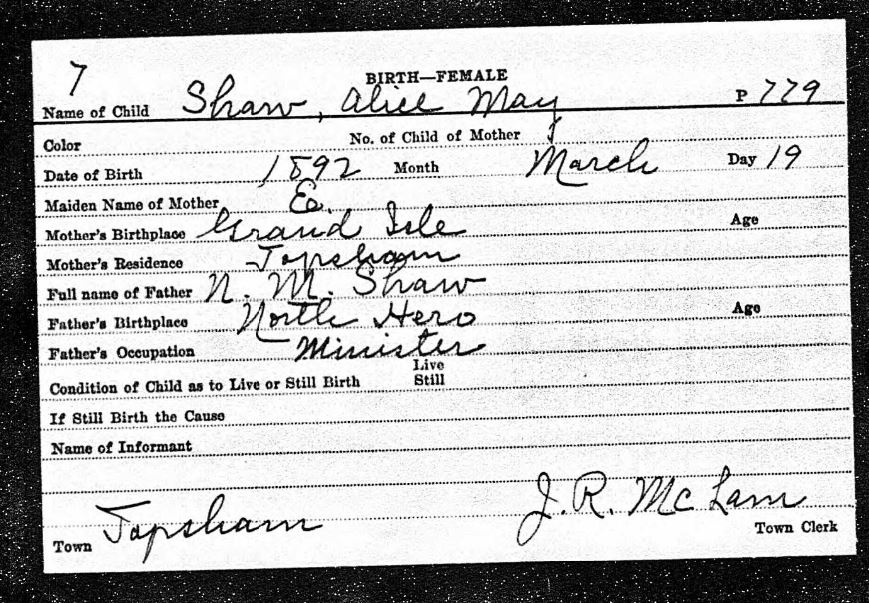 7
BIRTH—FEMALE
Name of Child Shaw, Alice May P 779
Color No. of Child of Mother
Date of Birth 1892 Month March Day 19
Maiden Name of Mother E.
Mother's Birthplace Grand Isle Age
Mother's Residence Topsham
Full name of Father N. M. Shaw
Father's Birthplace North Hero Age
Father's Occupation Minister
Condition of Child as to Live or Still Birth Live Still
If Still Birth the Cause
Name of Informant
Town Topsham J. R. McLam
Town Clerk